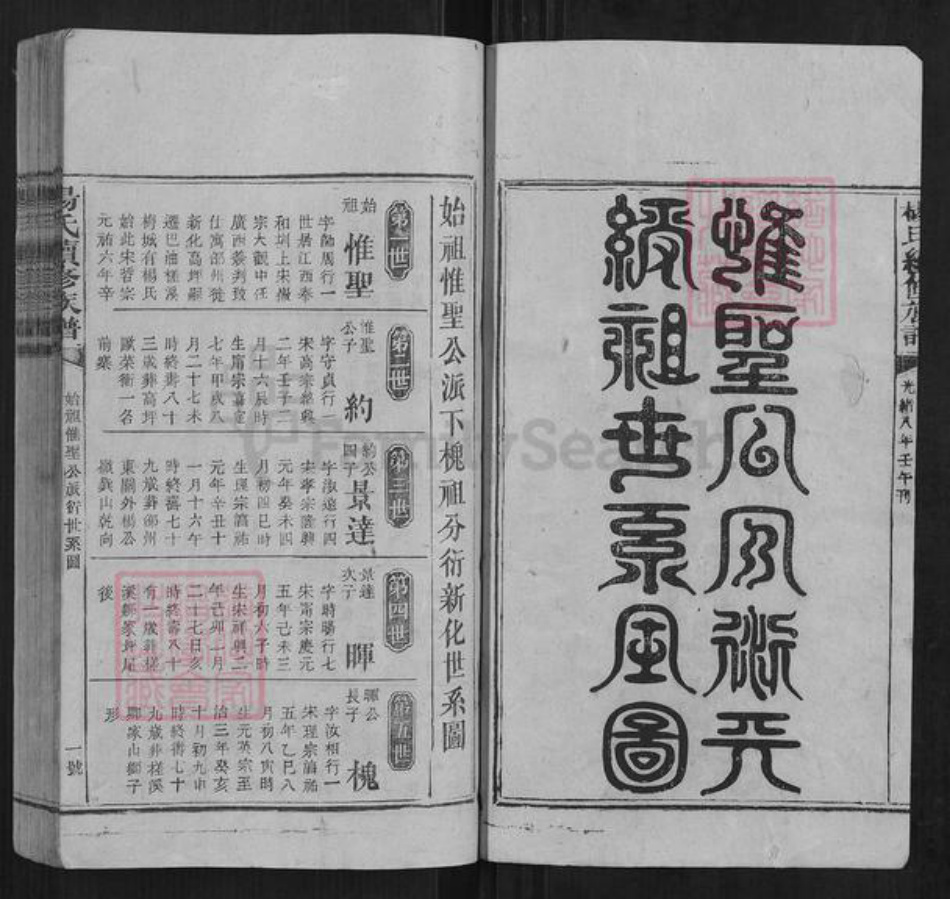 楊氏續修族譜
光緒八年壬午刊
惟聖公分衍天
綬祖世系全圖
始祖惟聖公派下槐祖分衍新化世系圖
第一世
始祖
惟聖
世居江西泰
和圳上宋徽
宗大觀中任
廣西簽判致
仕寓邵州徙
新化高坪嗣
遷巴油槎溪
梅城有楊氏
始此宋哲宗
元祐六年辛
第二世
惟聖公子
約
字守貞行一
宋高宗紹興
二年壬子二
月十六辰時
生甯宗嘉定
七年甲戌八
月二十七未
時終壽八十
三歲葬高坪
歐菜衝一名
前寨
第三世
約公
景達
字淑遠行四
宋孝宗隆興
元年癸未四
月初四巳時
生理宗淳祐
元年辛丑十
一月十六午
時終壽七十
九歲葬邵州
東關外楊公
嶺巽山乾向
第四世
景達次子
暉
字時暘行七
宋甯宗慶元
五年己未三
月初六子時
生宋祥興二
年己卯一月
二十七日亥
時終壽八十
有一歲葬槎
溪鄒家坪屋
後
第五世
暉公長子
槐
字汝相行一
宋理宗淳祐
五年乙巳八
月初八寅時
生元英宗至
治三年癸亥
十月初九申
時終壽七十
九歲葬槎溪
鄒家山獅子
形
楊氏續修族譜
始祖惟聖公派衍世系圖
一號
FamilySearch